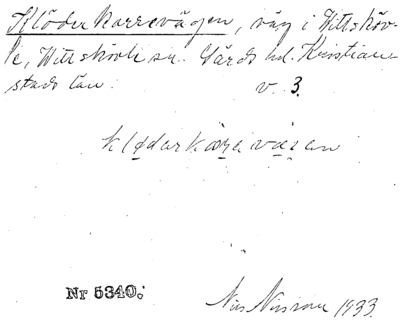 Klöderkarrevägen, väg i Vittsköv-
le, Vittskövle sn. Gärds hd. Kristian-
stads län. v. 3.
Nr 5340.
Nils Nilsson 1933.